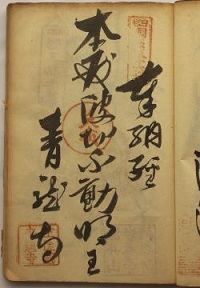 奉納經
本尊波切不動明王
青龍寺